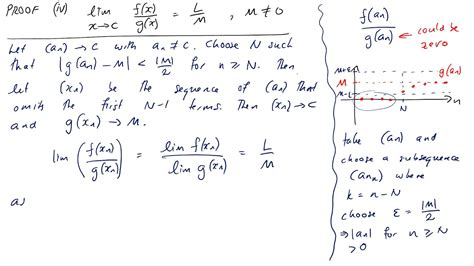 PROOF (iv) lim x→c f(x)/g(x) = L/M , M≠0
Let (an) → c with an ≠ c. Choose N such
that |g(an) - M| < |M|/2 for n ≥ N. Then
let (xn) be the sequence of (an) that
omits the first N-1 terms. Then (xn) → c
and g(xn) → M.
lim (f(xn)/g(xn)) = lim f(xn)/lim g(xn) = L/M
as
f(an)/g(an) ← could be
zero
M+ε
M
M-ε
g(an)
N
n
take (an) and
choose a subsequence
(ank) where
k = n-N
choose ε = |M|/2
⇒ |an| for n ≥ N
> 0